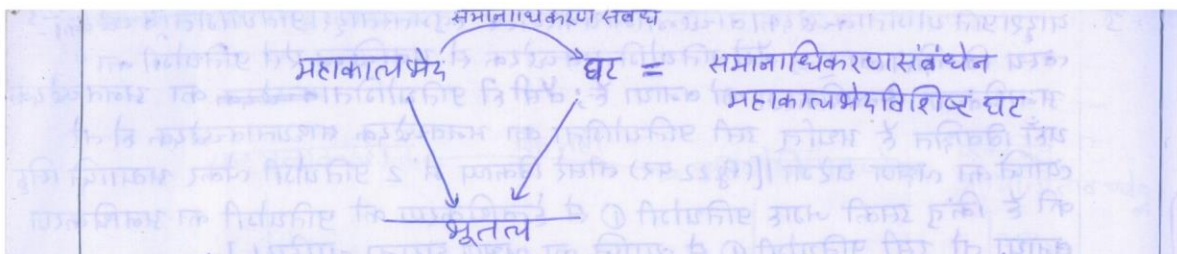 समानाधिकरण संबंध
महाकालभेद घट = समानाधिकरणसंबंधेन
महाकालभेदविशिष्ट घट
भूतल